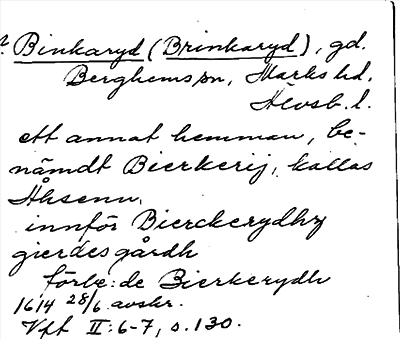 ? Binkaryd (Brinkaryd), gd.
Berghems sn, Marks hd,
Älvsb. l.
ett annat hemman, be-
nämdt Bierkerij, kallas
Åhsenn,
innför Bierckerydhz
gierdesgårdh
förbe:de Bierkerydh
1614 28/6 avskr.
Vft II:6-7, s. 130.